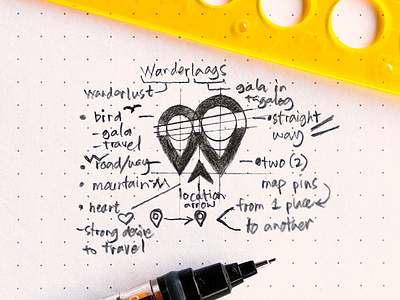 Wanderlaags
wanderlust
gala in
tagalog
• bird
- gala
- travel
• straight
way
• road/way
• two (2)
map pins
• mountain
location
arrow
from 1 place
to another
• heart
- strong desire
to travel